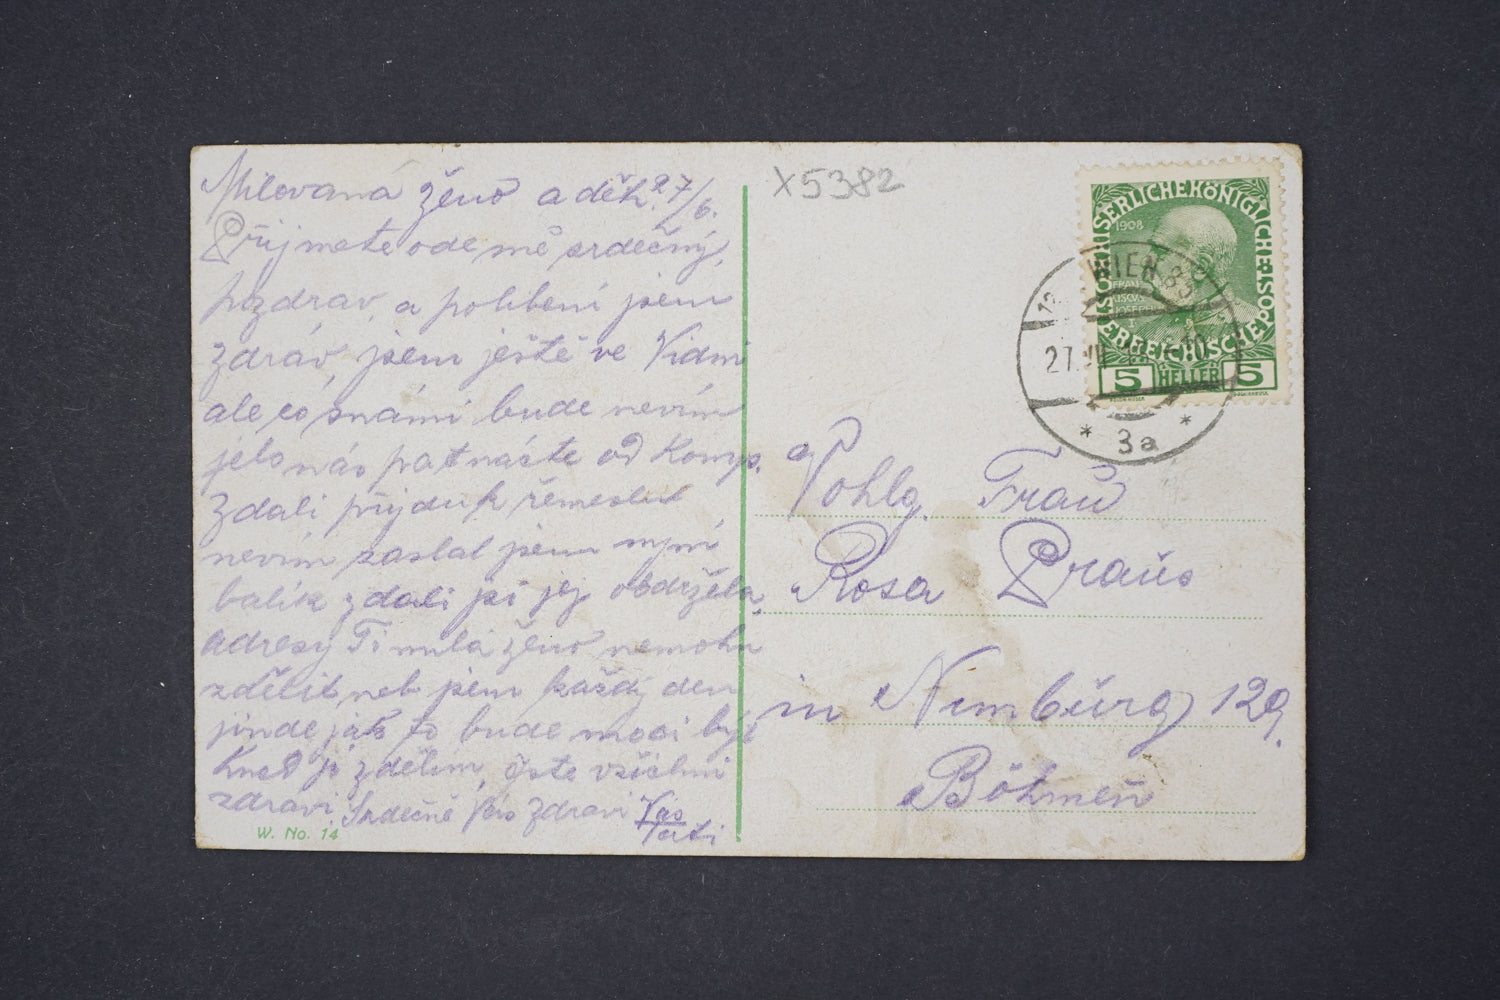 Milovaná ženo a děti. 27/6.
Přijmete ode mě srdečný
pozdrav, a políbení jsem
zdráv, jsem ještě ve Vídni
ale co snámi bude nevím
jelo nás patnáste od Komp.
zdali přijdu k řemeslu
nevím zaslal jsem nyní
balík zdali jsi jej obdržela,
adresy Ti milá ženo nemohu
zdělit neb jsem každý den
jinde jak to bude moci být
hned ji zdělím, jste všichni
zdravi. Srdečně Vás zdraví Váš
W. No. 14
X5382
KAISERLICHE KÖNIGLICHE
OESTERREICHISCHE POST
1908
5 HELLER 5
WIEN
27.VII
* 3a *
Wohlg. Frau
Rosa Praus
in Nimburg 129.
Böhmen